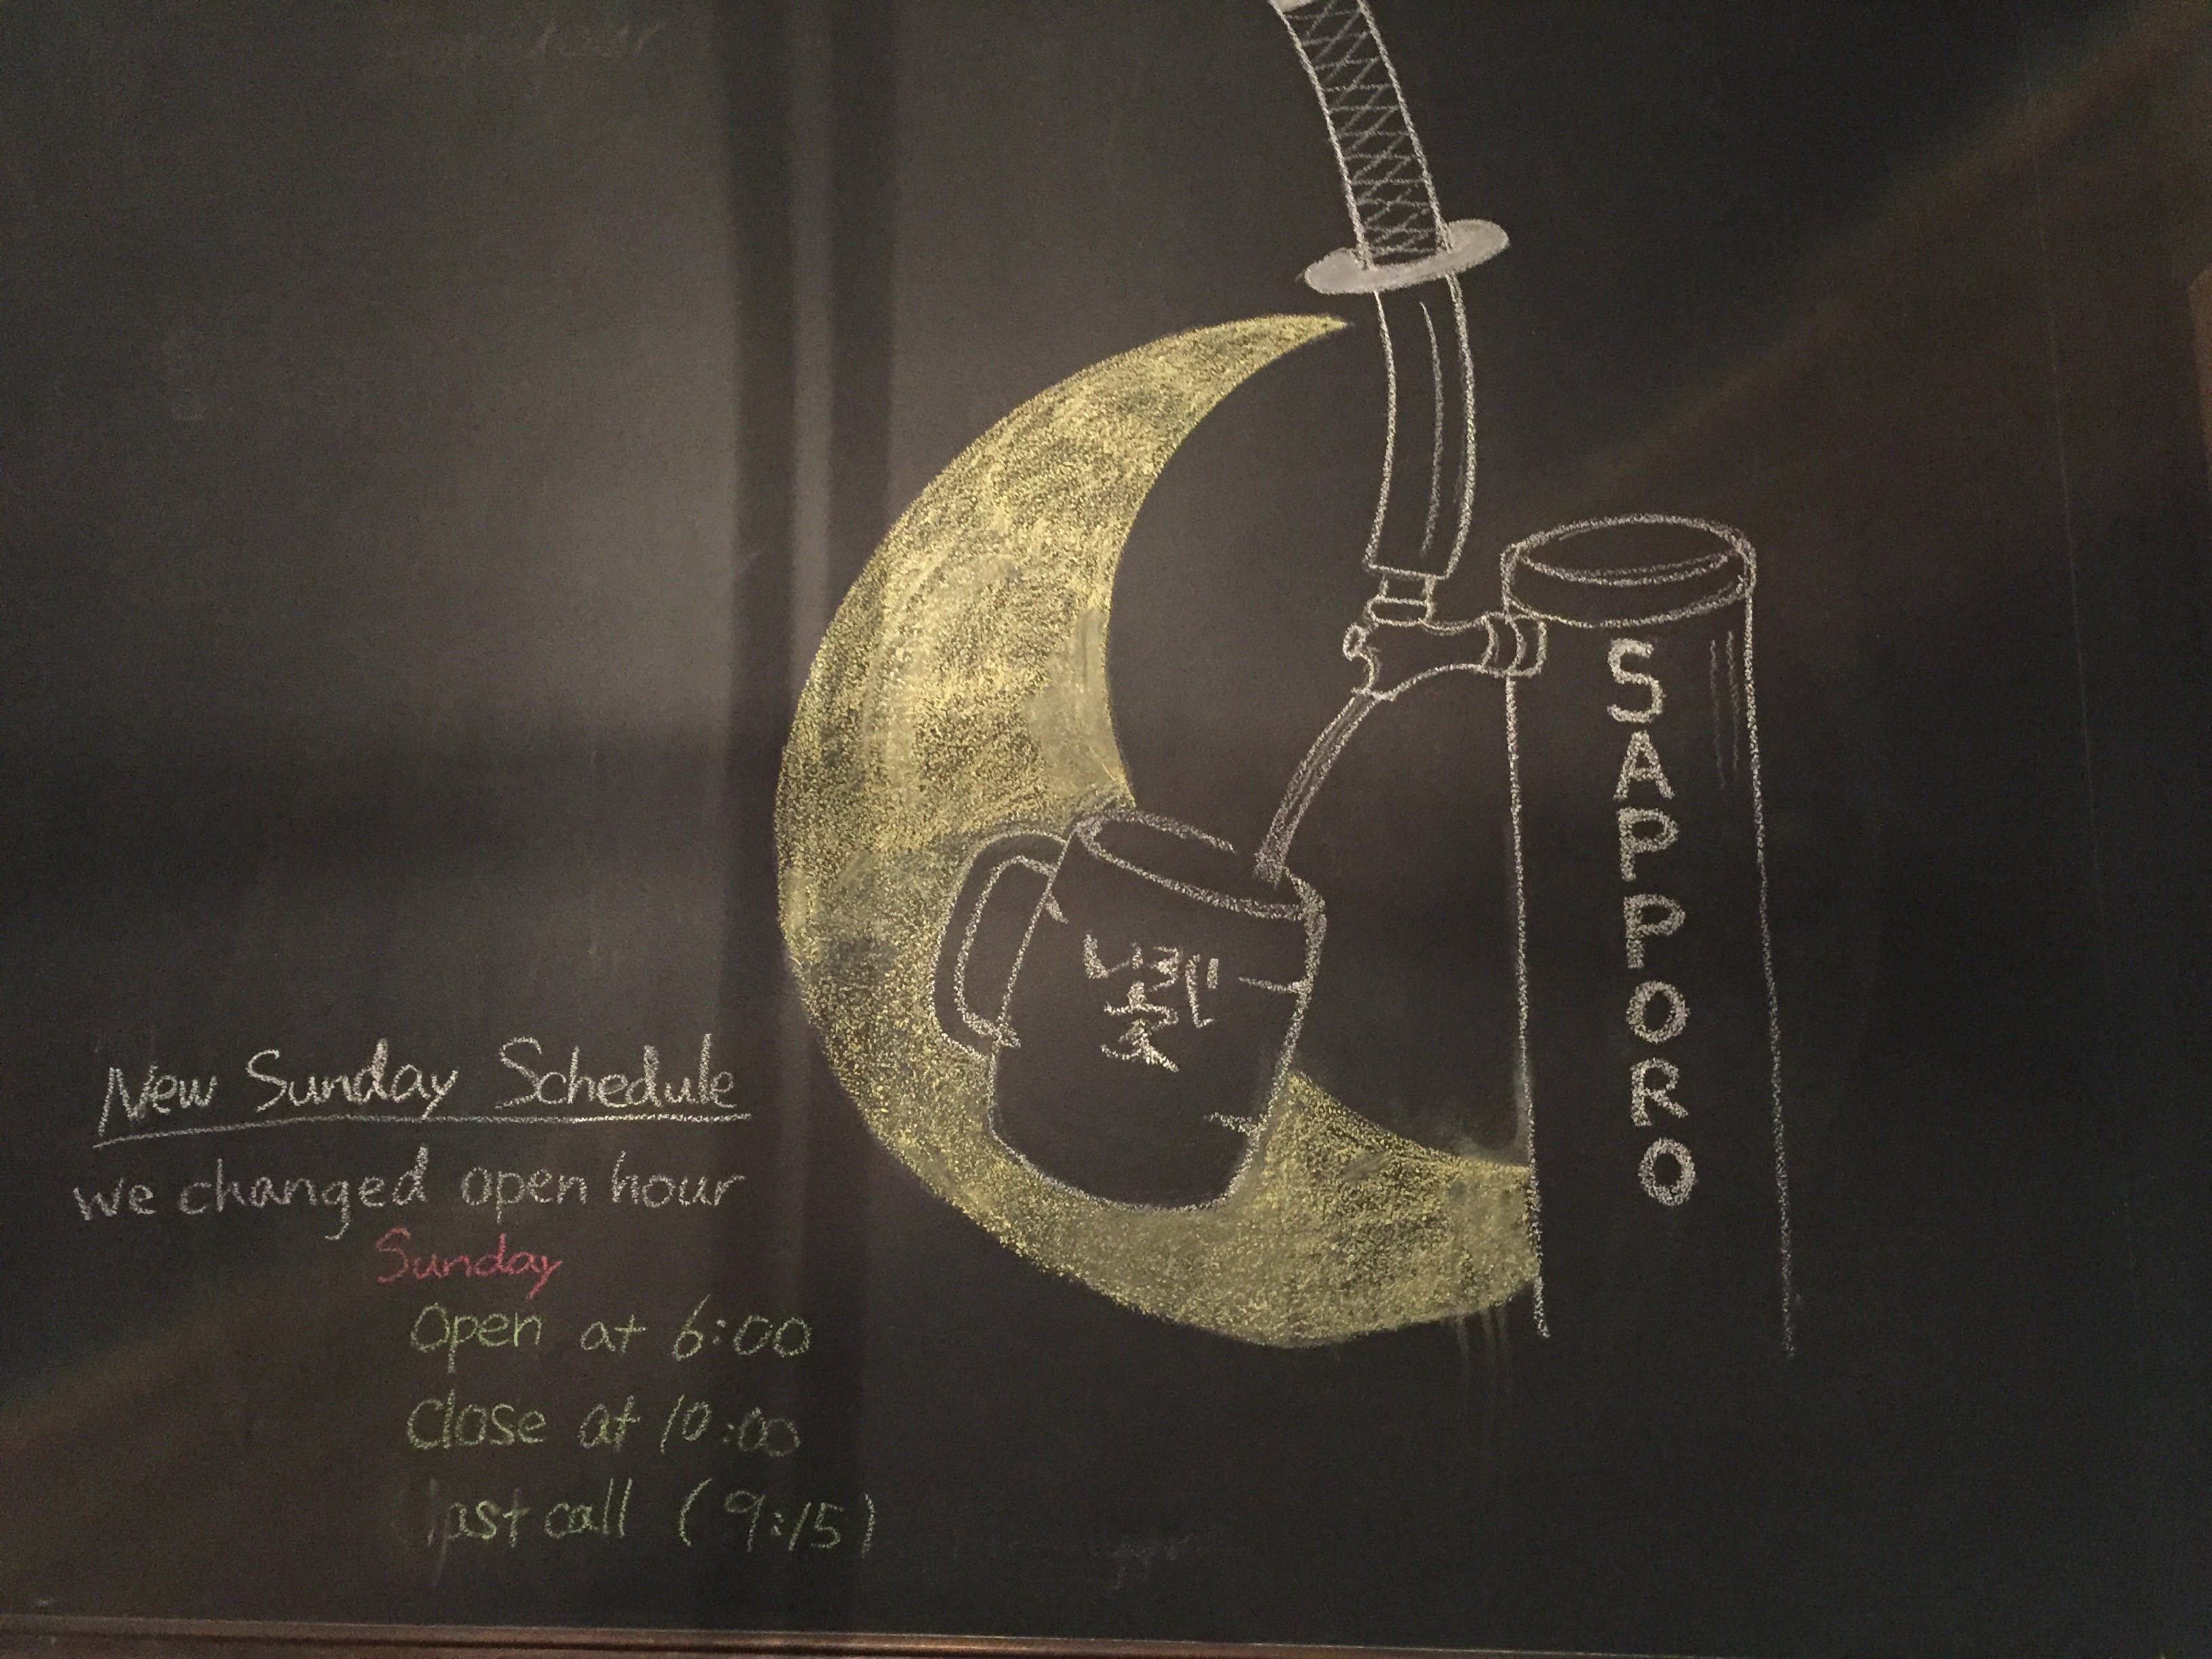 SAPPORO
New Sunday Schedule
we changed open hour
Sunday
open at 6:00
close at 10:00
last call (9:15)